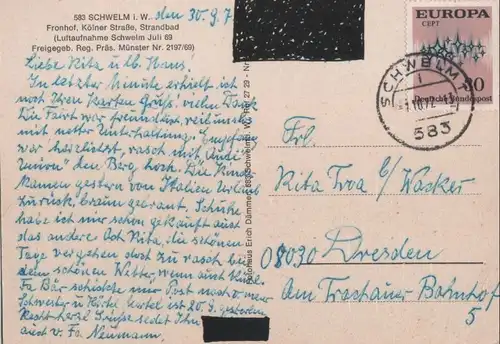 583 SCHWELM i. W.,
den 30. 9. 7
Fronhof, Kölner Straße, Strandbad
(Luftaufnahme Schwelm Juli 69
Freigegeb. Reg. Präs. Münster Nr. 2197/69)
Liebe Rita u. lb. Hans!
In letzter Minute erhielt ich
noch Ihren Karten Gruß. vielen Dank
Die Fahrt war freundlich, teilweise
mit netter Unterhaltung. Empfang
war herzlichst, rasch mit "Audi
Union" den Berg hoch. Die Kinder
kamen gestern von Italien Urlaub
zurück, braun gebrannt. Schuhe
habe ich mir schon gekauft auch
das andere Rita, die schönen
Tage vergehen doch zu rasch bei
dem schönen Wetter, wenn auch kühl.
Fa Bär schickte mir Post nach
Schwester u. 20. 9. gestorben
Recht herzl. Grüße sendet Ihnen
auch v. Fa. Neumann.
Fotohaus Erich Dämmer, 583 Schwelm i. W., 27 29 - Nr.
EUROPA
CEPT
30
Deutsche Bundespost
SCHWELM 1
-1.10.72
583
Frl.
Rita c/ Wacker
08030 Dresden
Am Trachauer Bahnhof
5